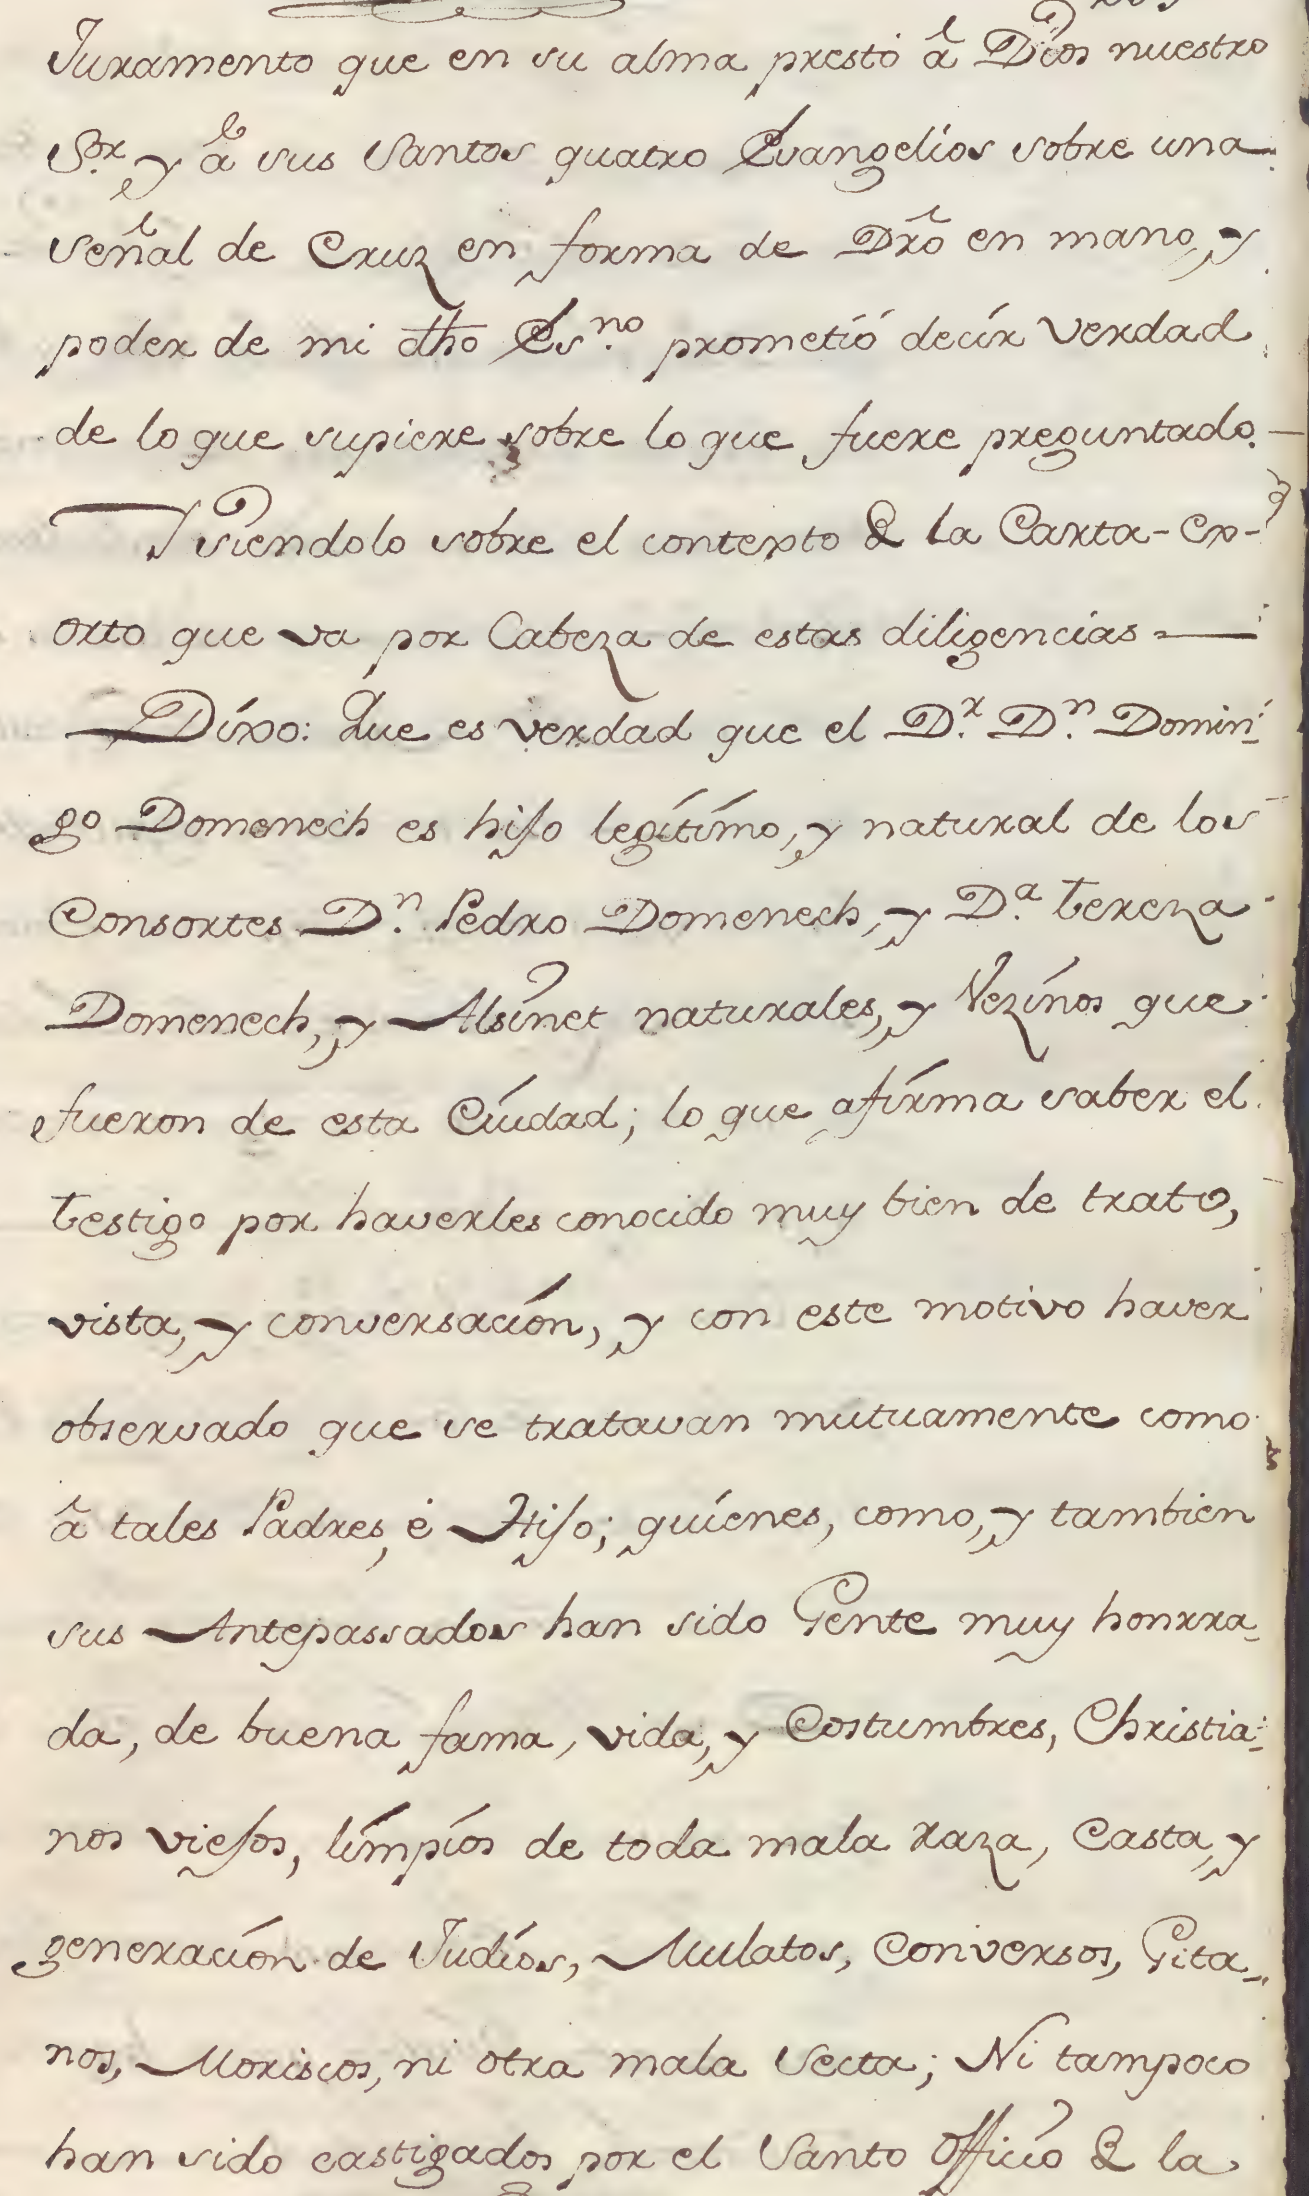 Juramento que en su alma prestó â Dios nuestro
S.or y â sus Santos quatro Evangelios sobre una
señal de Cruz en forma de Dr̃o en mano, y
poder de mi dho Es.no prometió decír verdad
de lo que supiere sobre lo que fuere preguntado.
Y siendolo sobre el contexto & la Carta-ex-
orto que va por Cabeza de estas diligencias
Díxo: Que es verdad que el D.r D.n Domin-
go Domenech es hijo legítímo, y natural de los
Consortes D.n Pedro Domenech, y D.a Tereza
Domenech, y Alsinet naturales, y Vezínos que
fueron de esta Cíudad; lo que afírma saber el
testigo por haverles conocido muy bien de trato,
vista, y conversacíón, y con este motivo haver
observado que se tratavan mutuamente como
â tales Padres, é Hijo; quíenes, como, y tambien
sus Antepassados han sido Gente muy honrra-
da, de buena fama, vida, y Costumbres, Christia-
nos viejos, límpíos de toda mala raza, Casta, y
generacíón de Judíos, Mulatos, Conversos, Gita-
nos, Moriscos, ni otra mala Secta; Ni tampoco
han sido castigados por el Santo Officío & la